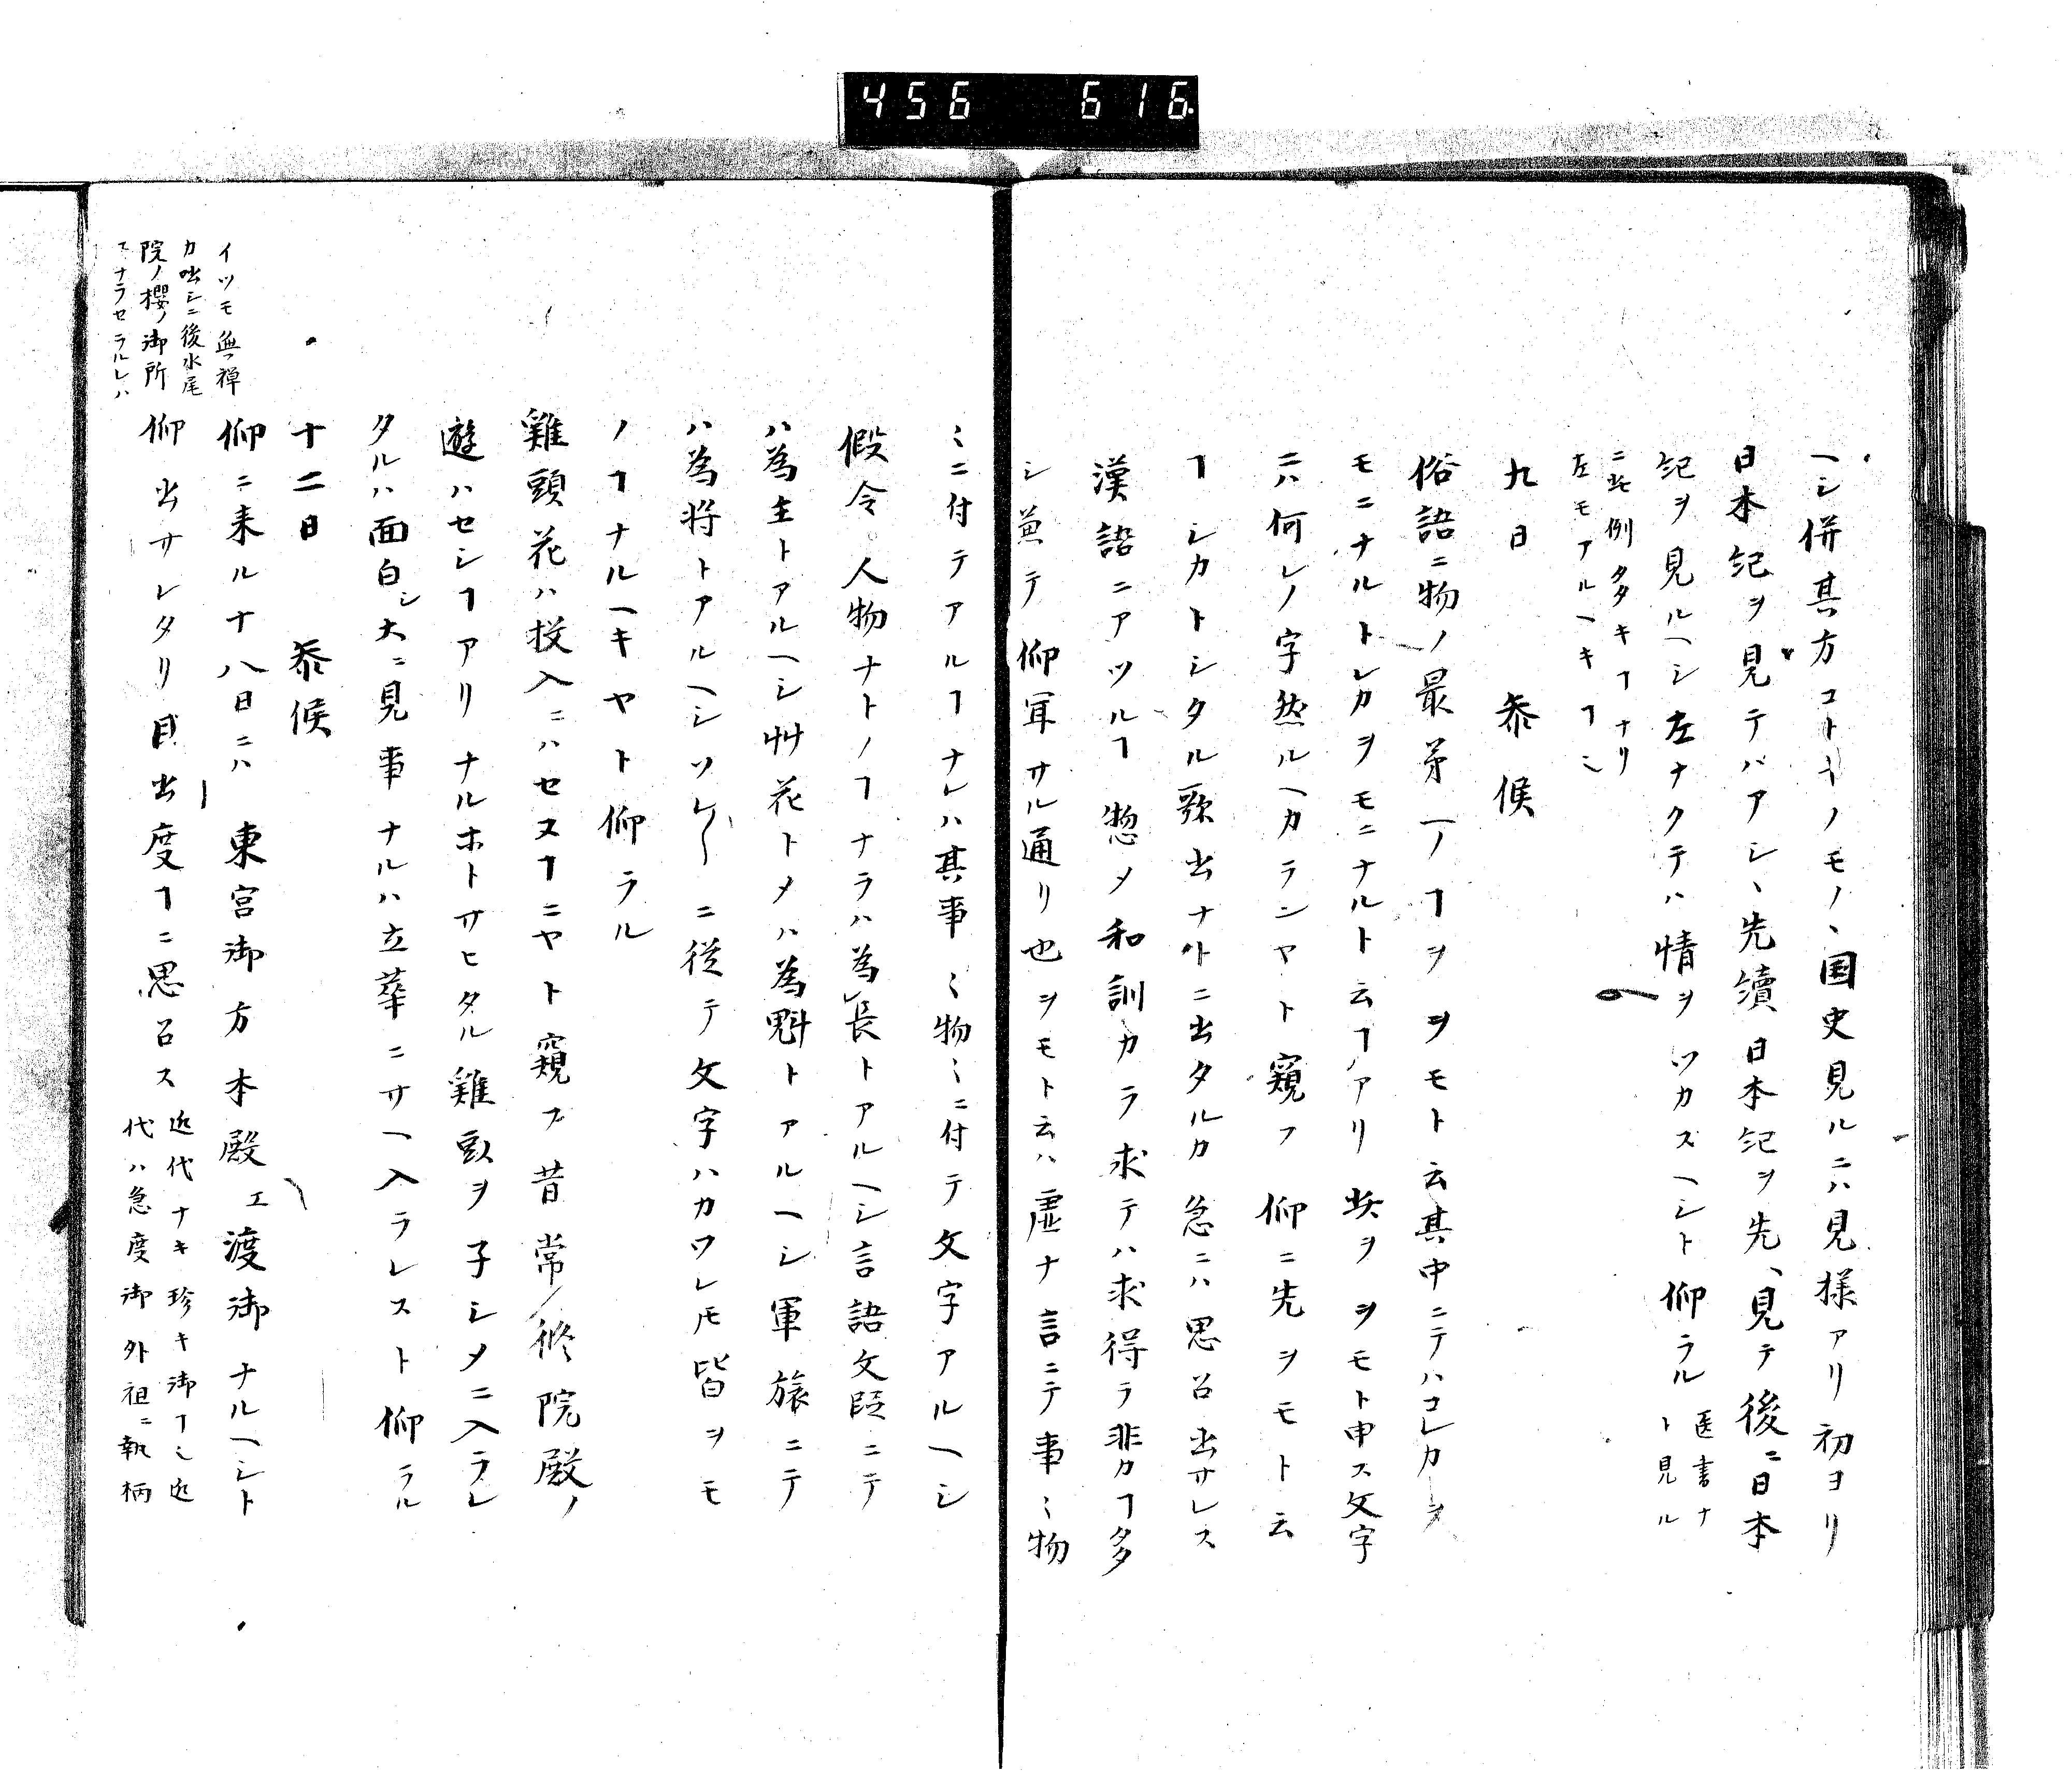 456 616
ヘシ併其方コトキノモノヽ国史見ルニハ見様アリ初ヨリ
日本紀ヲ見テバアシヽ先續日本紀ヲ先ヽ見テ後ニ日本
紀ヲ見ルヘシ左ナクテハ情ヲツカスヘシト仰ラル 医書ナ
ト見ル
ニ此例多キヿナリ
左モアルヘキヿニ
九日 参候
俗語ニ物ノ最第一ノヿヲヲモト云其中ニテハコレカヲ
モニナルトレカヲモニナルト云ヿアリ此ヲヲモト申ス文字
ニハ何レノ字然ルヘカランヤト窺フ仰ニ先ヲモト云
ヿシカトシタル歌出ナト外ニ出タルカ急ニハ思召出サレス
漢語ニアツルヿ惣メ和訓カラ求テハ求得ラ非カヿ多
シ兼テ仰耳サル通リ也ヲモト云ハ虚ナ言ニテ事ミ物
ミニ付テアルヿナレハ其事ミ物ミニ付テ文字アルヘシ
假令人物ナトノヿナラハ為長トアルヘシ言語文段ニテ
ハ為主トアルヘシ艸花トメハ為魁トアルヘシ軍旅ニテ
ハ為将トアルヘシソレ〱ニ従テ文字ハカワレ𪜈皆ヲモ
ノヿナルヘキヤト仰ラル
雞頭花ハ投入ニハセヌヿニヤト窺フ昔常修院殿ノ
遊ハセシヿアリナルホトサヒタル雞頭ヲ子シメニ入ラレ
タルハ面白シ大ニ見事ナルハ立華ニサヘ入ラレスト仰ラル
十二日 参候
仰ニ来ル十八日ニハ東宮御方本殿エ渡御ナルヘシト
仰出サレタリ目出度ヿニ思召ス 近代ナキ珍キ御ヿニ近
代ハ急度御外祖ニ執柄
イツモ無禅
カ出シニ後水尾
院ノ櫻ノ御所
ヱナラセラルレハ